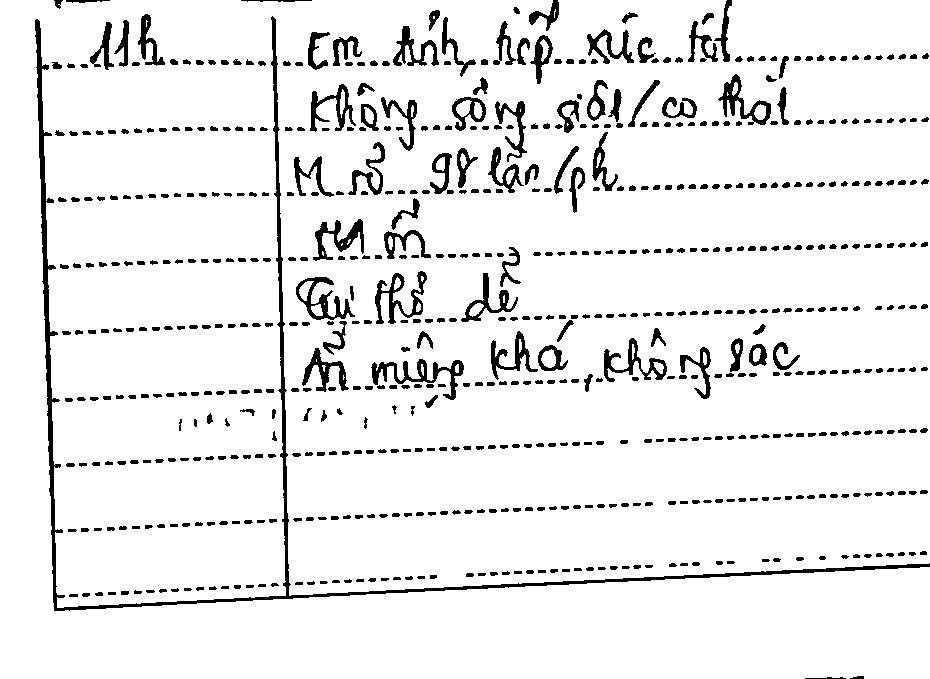 11h Em tỉnh, tiếp xúc tốt
Không sống giật/co thắt
M rõ 98 lần/ph
HA ổn
Tự thở dễ
Ăn miệng khá, không sặc